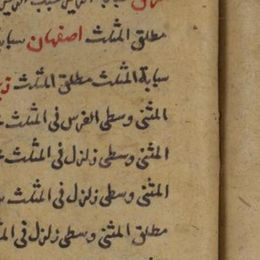 مطلق المثلث اصفهان سبابة
سبابة المثلث مطلق المثلث
المثنى وسطى الفرس فى المثلث
المثنى وسطى زلزل فى المثلث
المثنى وسطى زلزل فى المثلث
مطلق المثنى وسطى زلزل فى